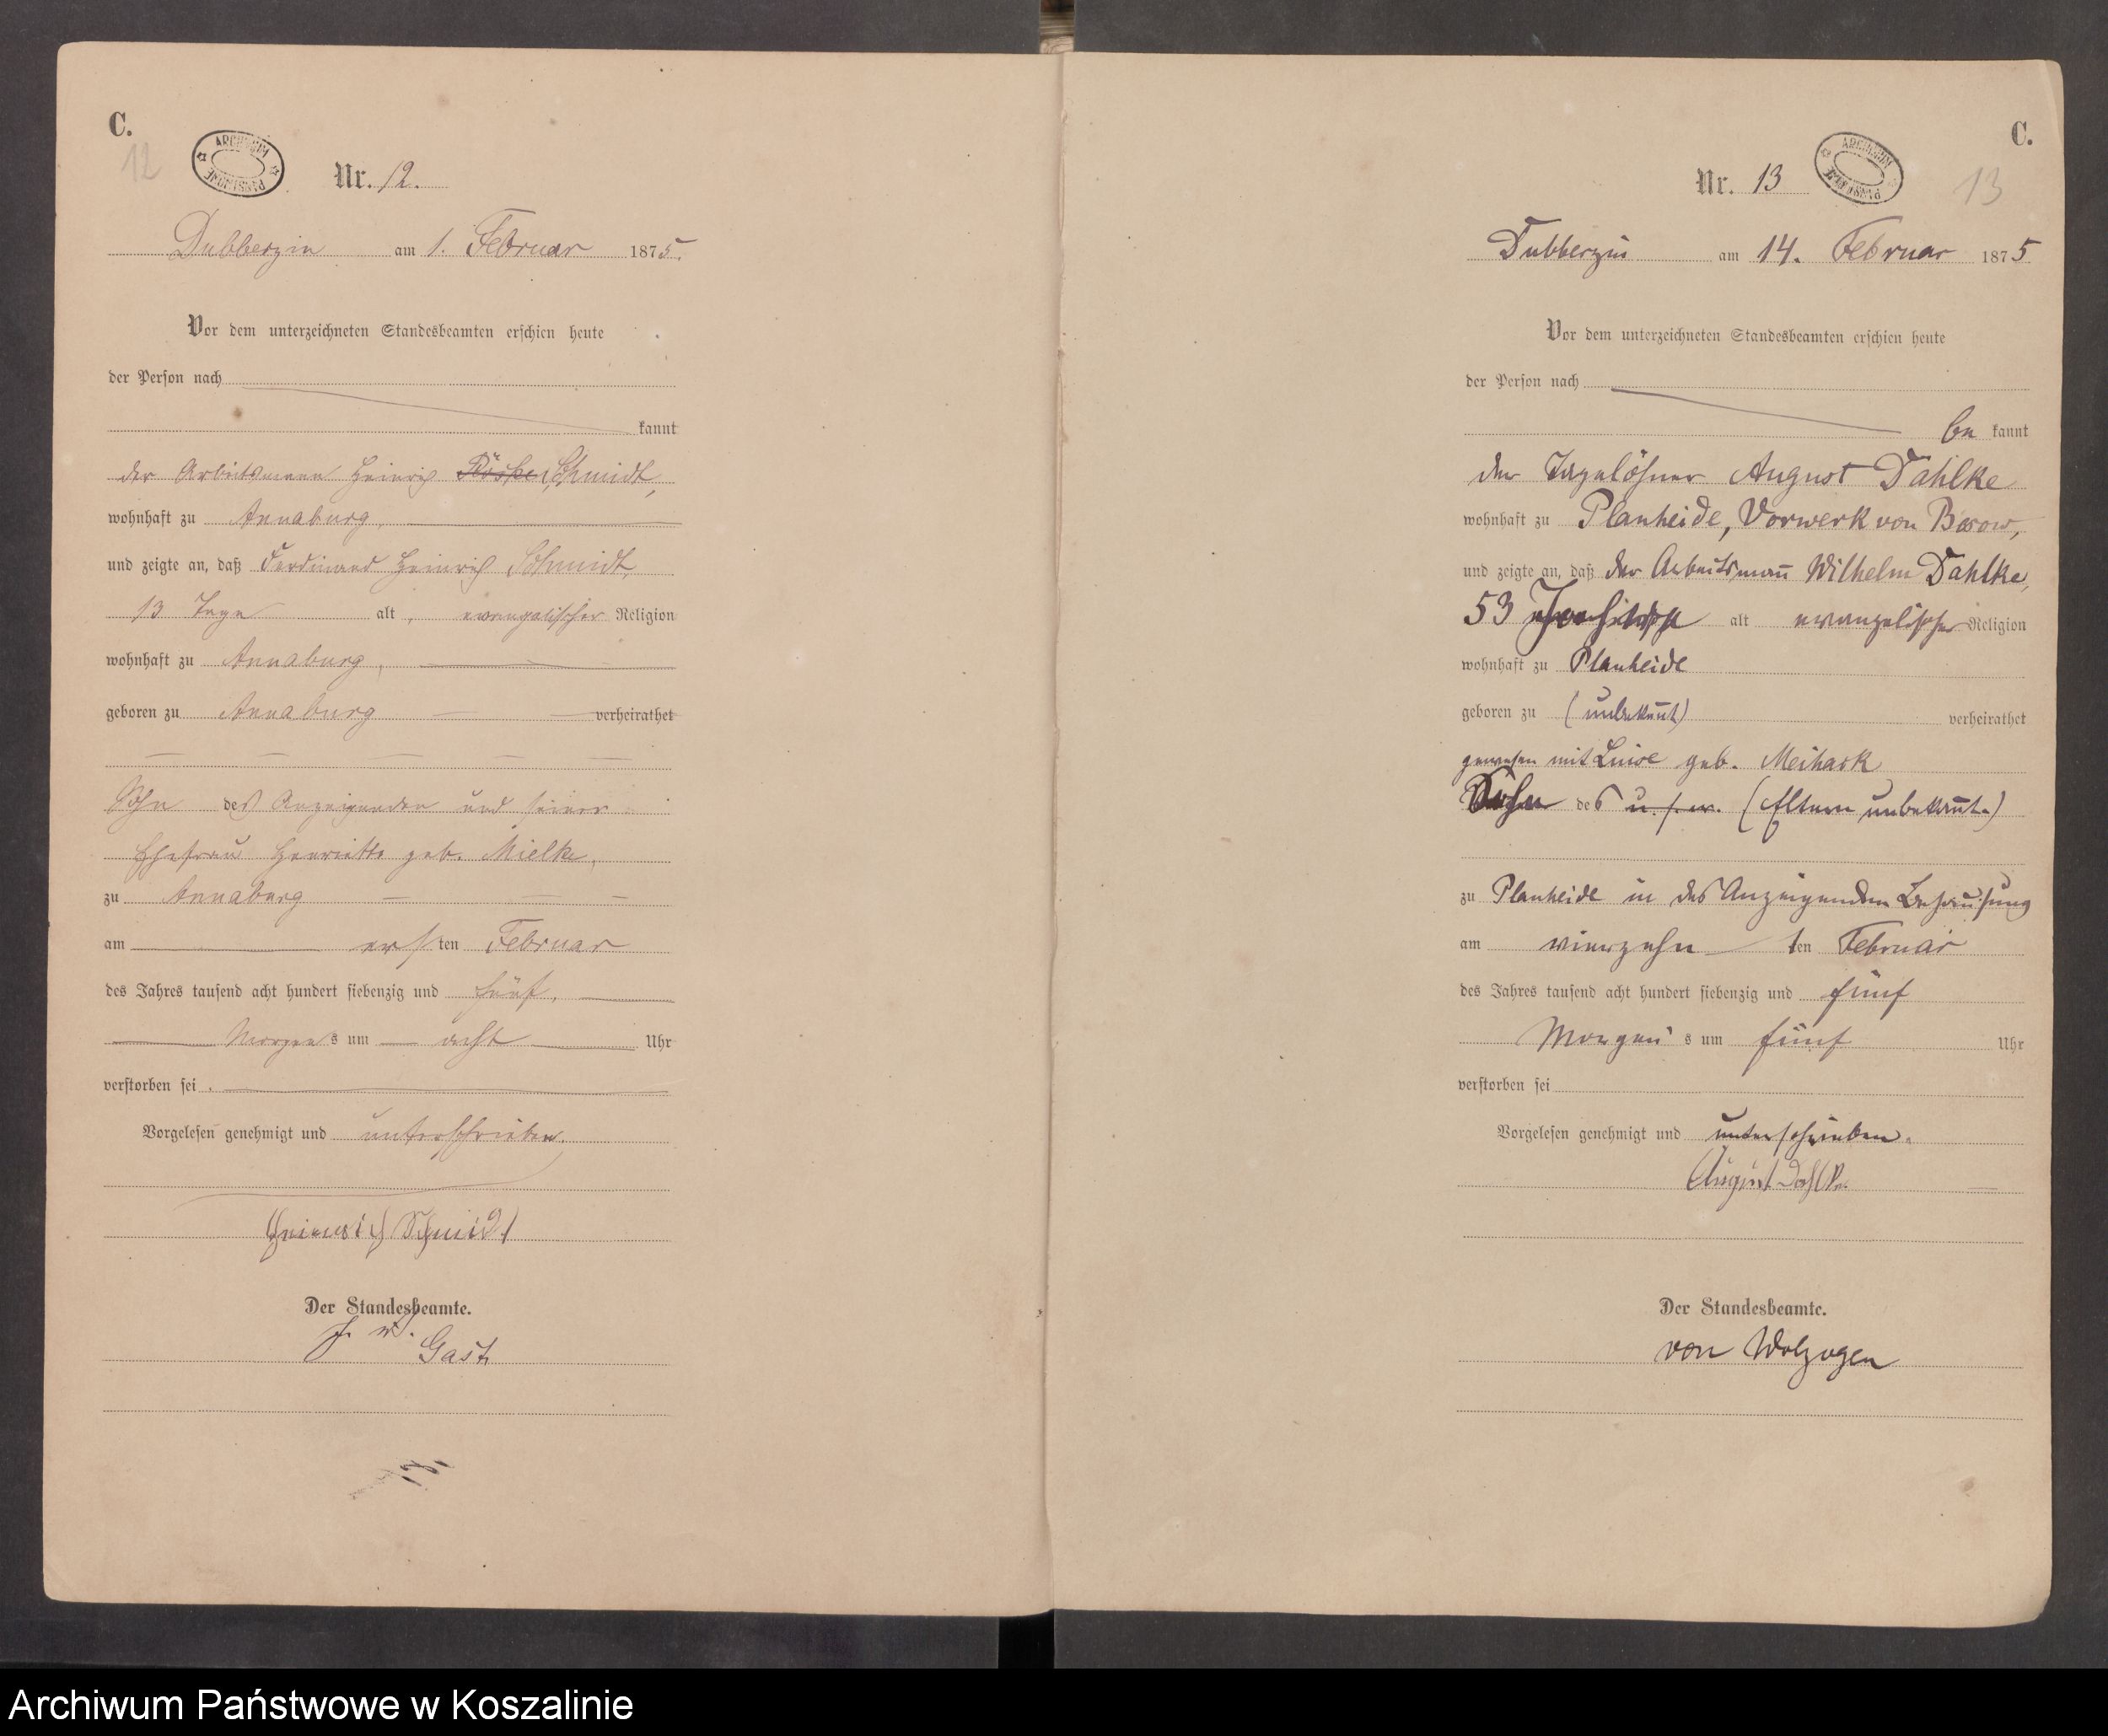 C.
12
ARCHIWUM PAŃSTWOWE
Nr. 12.
Dubberzin am 1. Februar 1875.
Vor dem unterzeichneten Standesbeamten erschien heute
der Person nach
kannt
der Arbeitsmann Heinrich Röske Schmidt,
wohnhaft zu Annaburg,
und zeigte an, daß Ferdinand Heinrich Schmidt,
13 Tage alt, evangelischer Religion
wohnhaft zu Annaburg,
geboren zu Annaburg verheirathet
Sohn des Anzeigenden und seiner
Ehefrau Henriette geb. Mielke,
zu Annaburg
am ersten Februar
des Jahres tausend acht hundert siebenzig und fünf,
Morgens um acht Uhr
verstorben sei.
Vorgelesen genehmigt und unterschrieben.
Heinrich Schmidt
Der Standesbeamte.
Gast
C.
Nr. 13
ARCHIWUM PAŃSTWOWE
13
Dubberzin am 14. Februar 1875
Vor dem unterzeichneten Standesbeamten erschien heute
der Person nach
be kannt
der Tagelöhner August Dahlke
wohnhaft zu Planheide, Vorwerk von
und zeigte an, daß der Arbeitsmañ Wilhelm Dahlke,
53 alt evangelischer Religion
wohnhaft zu Planheide
geboren zu (unbekañt) verheirathet
gewesen mit Luise geb.
Sohn des u. s. w. (Eltern unbekañt.)
zu Planheide in des Anzeigenden Behausung
am vierzehnten Februar
des Jahres tausend acht hundert siebenzig und fünf
Morgens um fünf Uhr
verstorben sei
Vorgelesen genehmigt und unterschrieben.
August Dahlke
Der Standesbeamte.
von Wolzogen
Archiwum Państwowe w Koszalinie